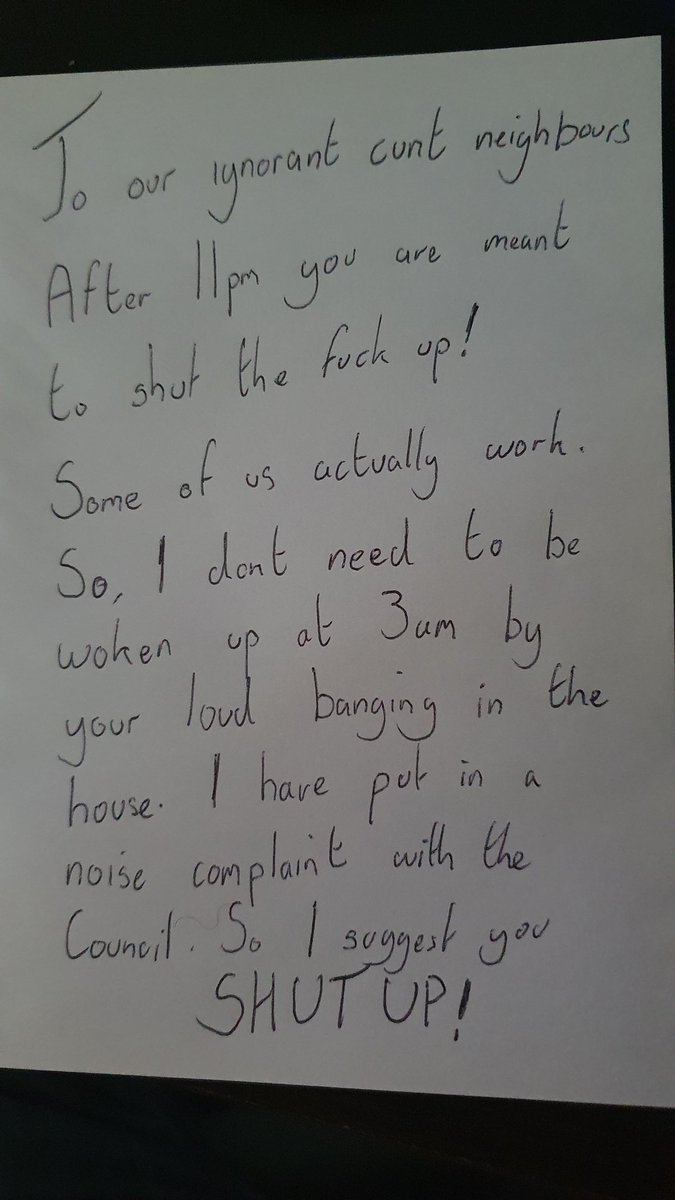 To our ignorant cunt neighbours
After 11pm you are meant
to shut the fuck up!
Some of us actually work.
So, I dont need to be
woken up at 3am by
your loud banging in the
house. I have put in a
noise complaint with the
Council. So I suggest you
SHUT UP!